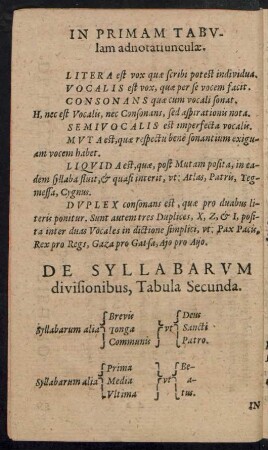 IN PRIMAM TABV-
lam adnotatiunculæ.
LITERA est vox quæ scribi potest individua.
VOCALIS est vox, quæ per se vocem facit.
CONSONANS quæ cum vocali sonat.
H, nec est Vocalis, nec Consonans, sed aspirationis nota.
SEMIVOCALIS est imperfecta vocalis.
MVTA est, quæ respectu bene sonantium exigu-
am vocem habet.
LIQVIDA est, quæ, post Mutam posita, in ea-
dem syllaba fluit, & quasi interit, vt: Atlas, Patris, Teg-
messa, Cygnus.
DVPLEX consonans est, quæ pro duabus li-
teris ponitur. Sunt autem tres Duplices, X, Z, & I, posi-
ta inter duas Vocales in dictione simplici, vt: Pax Pacis,
Rex pro Regs, Gaza pro Gatsa, Ajo pro Aijo.
DE SYLLABARVM
divisionibus, Tabula Secunda.
Brevis Deus
Syllabarum alia Longa vt Sancti
Communis Patro.
Prima Be-
Syllabarum alia Media vt a-
Vltima tus.
IN